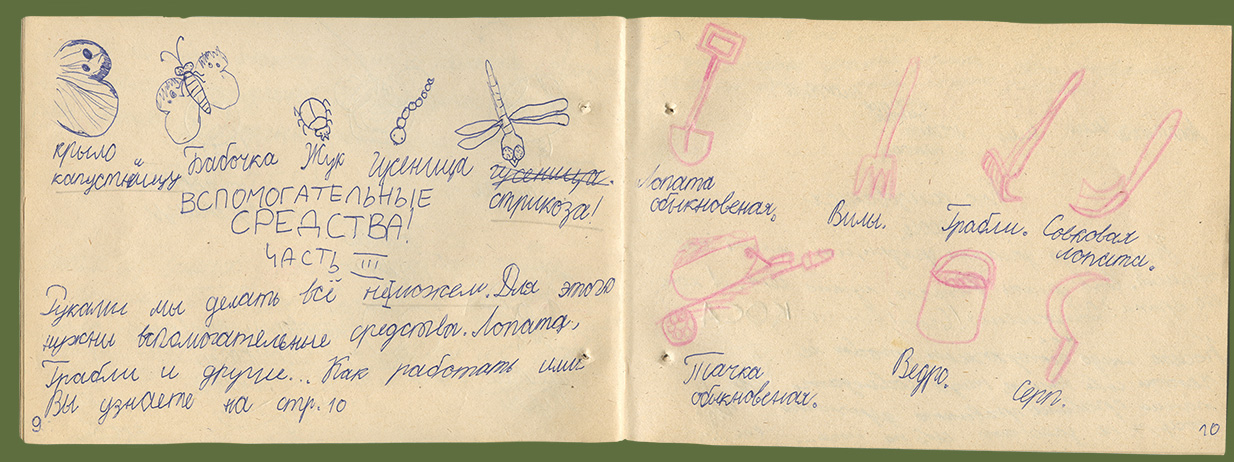 крыло
капустницы
Бабочка
Жук
Гусеница
гусеница.
стрикоза!
ВСПОМОГАТЕЛЬНЫЕ
СРЕДСТВА!
ЧАСТЬ III
Руками мы делать всё неможем. Для этого
нужны вспомогательные средства. Лопата,
Грабли и другие... Как работать ими
Вы узнаете на стр. 10
9
Лопата
обыкновеная.
Вилы.
Грабли.
Совковая
лопата.
Тачка
обыкновеная.
Ведро.
Серп.
10